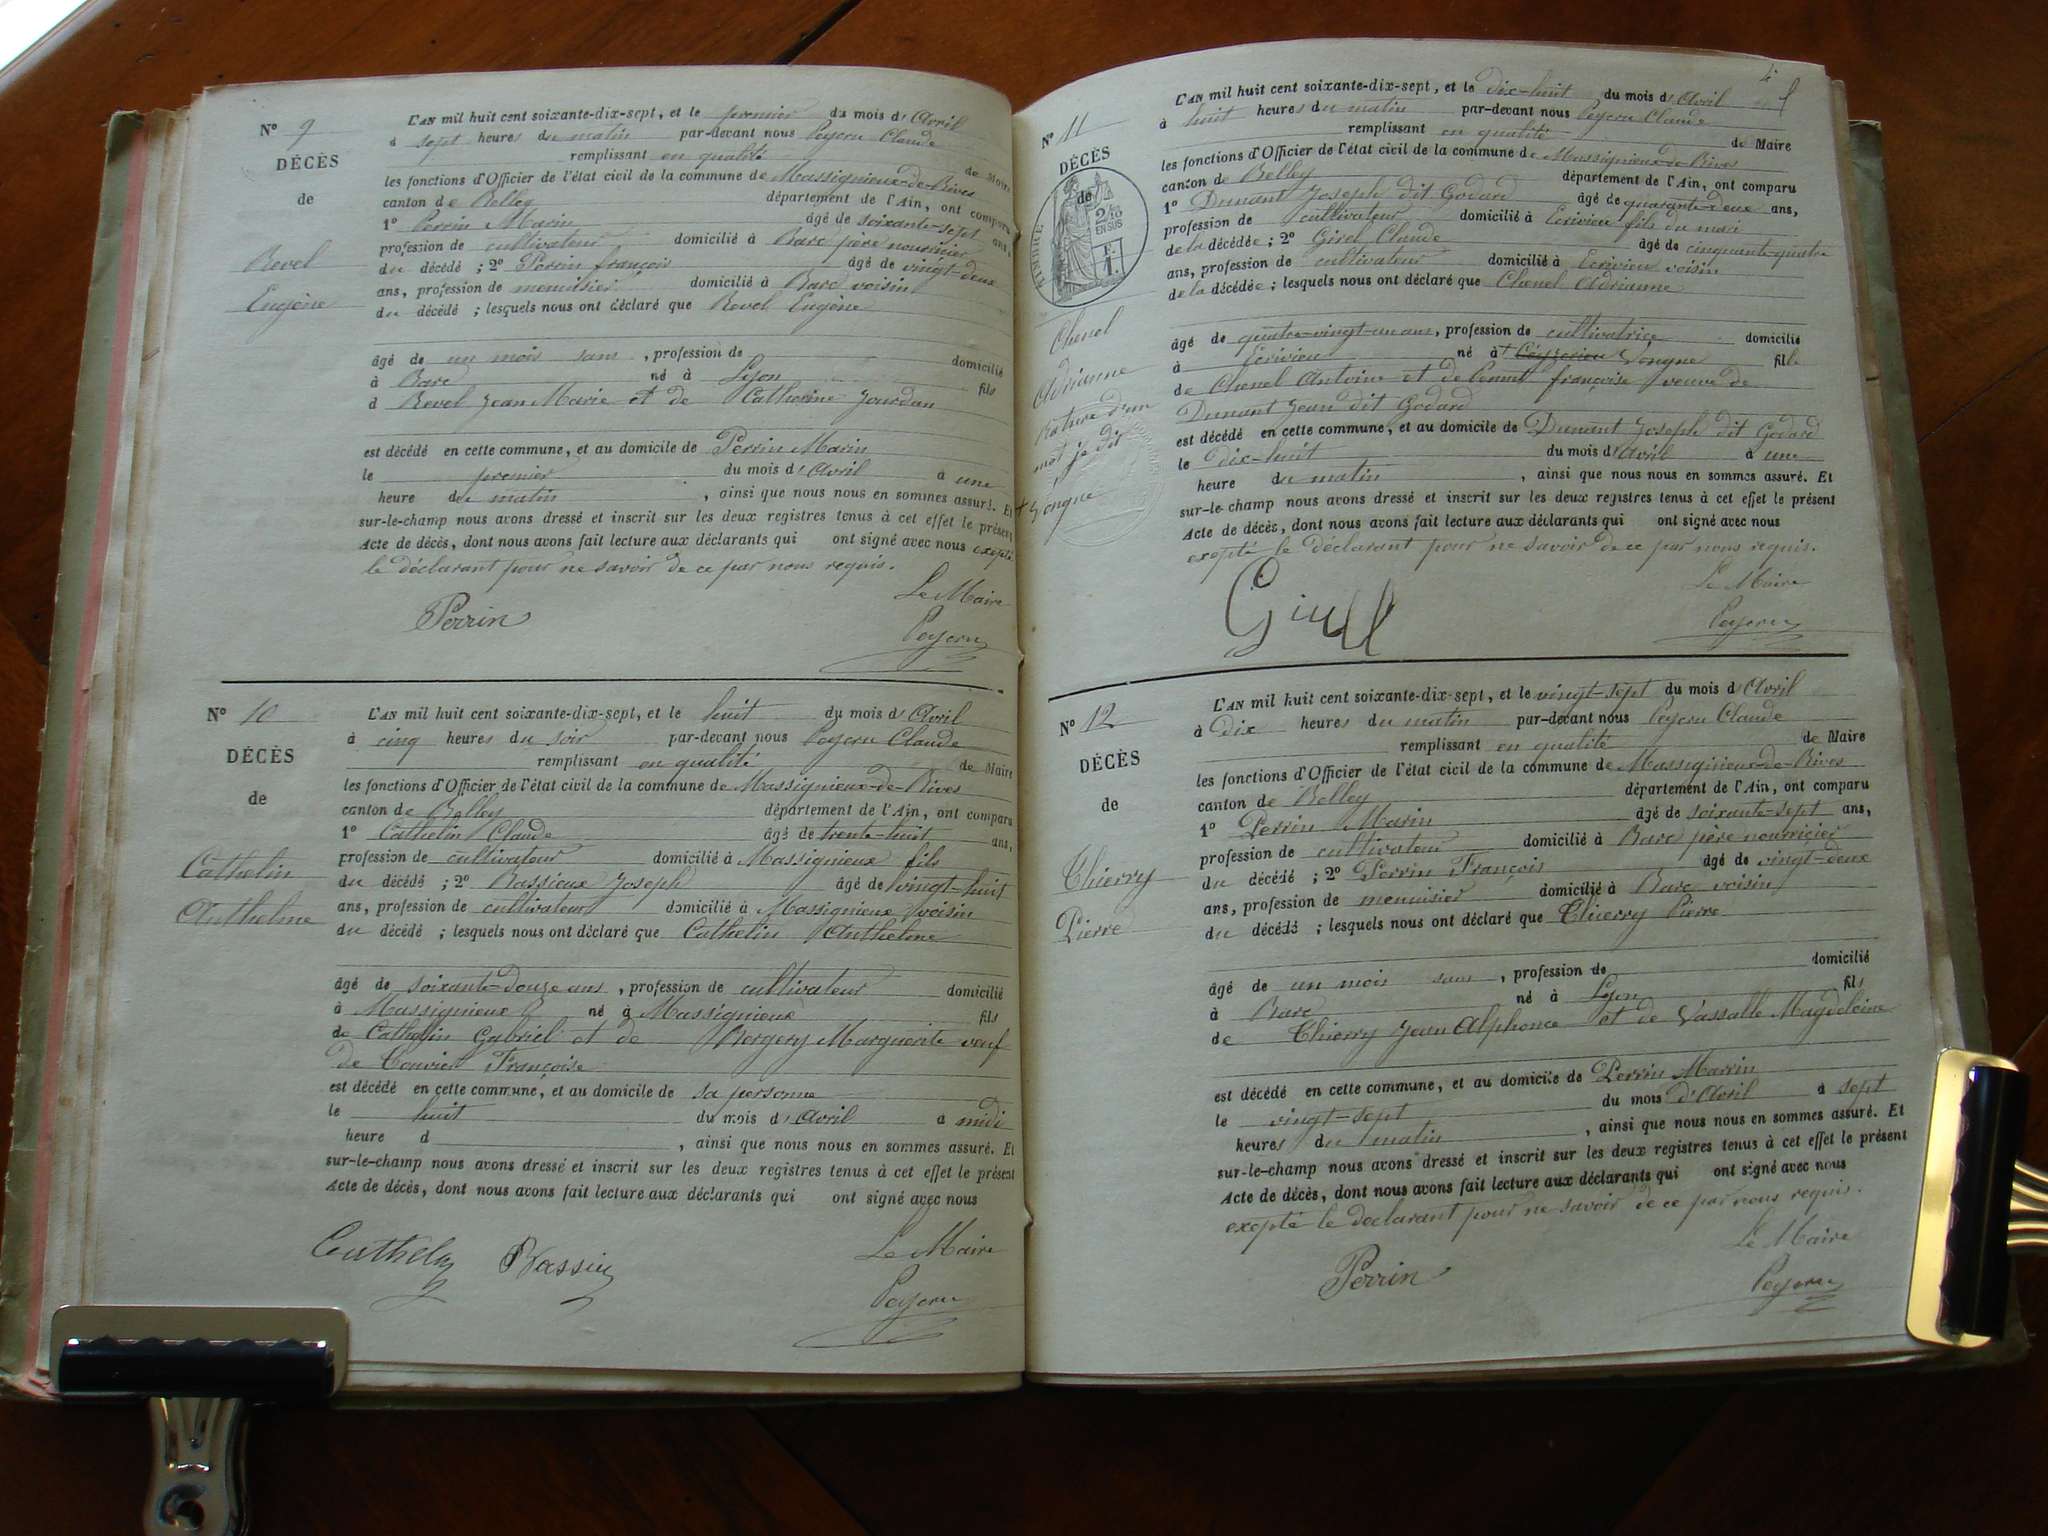 N° 9
DÉCÈS
de
Revel
Eugène
L'AN mil huit cent soixante-dix-sept, et le premier du mois d'Avril
à sept heures du matin par-devant nous Peycru Claude
remplissant en qualité de Maire
les fonctions d'Officier de l'état civil de la commune de Massignieux-de-Rives
canton de Belley département de l'Ain, ont comparu
1° Perrin Marin âgé de soixante-sept ans,
profession de cultivateur domicilié à Barc père nourricier
du décédé ; 2° Perrin françois âgé de vingt-deux
ans, profession de menuisier domicilié à Barc voisin
du décédé ; lesquels nous ont déclaré que Revel Eugène
âgé de un mois sans , profession de domicilié
à Barc né à Lyon fils
d Revel Jean Marie et de Catherine Jourdan
est décédé en cette commune, et au domicile de Perrin Marin
le premier du mois d'Avril à une
heure du matin , ainsi que nous nous en sommes assuré. Et
sur-le-champ nous avons dressé et inscrit sur les deux registres tenus à cet effet le présent
Acte de décès, dont nous avons fait lecture aux déclarants qui ont signé avec nous exepté
le déclarant pour ne savoir de ce par nous requis.
Le Maire
Perrin
Peycru
N° 10
DÉCÈS
de
Cathelin
Anthelme
L'AN mil huit cent soixante-dix-sept, et le huit du mois d'Avril
à cinq heures du soir par-devant nous Peycru Claude
remplissant en qualité de Maire
les fonctions d'Officier de l'état civil de la commune de Massignieux-de-Rives
canton de Belley département de l'Ain, ont comparu
1° Cathelin Claude âgé de trente-huit ans,
profession de cultivateur domicilié à Massignieux fils
du décédé ; 2° Bassieux Joseph âgé de vingt-huit
ans, profession de cultivateur domicilié à Massignieux voisin
du décédé ; lesquels nous ont déclaré que Cathelin Anthelme
âgé de soixante-douze ans , profession de cultivateur domicilié
à Massignieux né à Massignieux fils
de Cathelin Gabriel et de Bergery Marguerite veuf
de Françoise
est décédé en cette commune, et au domicile de sa personne
le huit du mois d'Avril à midi
heure d , ainsi que nous nous en sommes assuré. Et
sur-le-champ nous avons dressé et inscrit sur les deux registres tenus à cet effet le présent
Acte de décès, dont nous avons fait lecture aux déclarants qui ont signé avec nous
Le Maire
Peycru
4
N° 11
DÉCÈS
de
TIMBRE
2/10
EN SUS
F.
1
Chenel
Adrianne
Rature d'un
mot je dit
+ Songne
L'AN mil huit cent soixante-dix-sept, et le dix-huit du mois d'Avril
à huit heures du matin par-devant nous Peycru Claude
remplissant en qualité de Maire
les fonctions d'Officier de l'état civil de la commune de Massignieux-de-Rives
canton de Belley département de l'Ain, ont comparu
1° Dunant Joseph dit Godard âgé de quarante-deux ans,
profession de cultivateur domicilié à Ecrivieu fils du mari
de la décédée ; 2° Girel Claude âgé de cinquante-quatre
ans, profession de cultivateur domicilié à Ecrivieu voisin
de la décédée ; lesquels nous ont déclaré que Chenel Adrianne
âgé de quatre-vingt-un ans, profession de cultivatrice domicilié
à Ecrivieu né à + Ceyzerieu Songne fille
de Chenel Antoine et de françoise veuve de
Dunant Jean dit Godard
est décédé en cette commune, et au domicile de Dunant Joseph dit Godard
le dix-huit du mois d'Avril à une
heure du matin , ainsi que nous nous en sommes assuré. Et
sur-le-champ nous avons dressé et inscrit sur les deux registres tenus à cet effet le présent
Acte de décès, dont nous avons fait lecture aux déclarants qui ont signé avec nous
exepté le déclarant pour ne savoir de ce par nous requis.
Le Maire
Peycru
N° 12
DÉCÈS
de
Thierry
Pierre
L'AN mil huit cent soixante-dix-sept, et le vingt-sept du mois d'Avril
à dix heures du matin par-devant nous Peycru Claude
remplissant en qualité de Maire
les fonctions d'Officier de l'état civil de la commune de Massignieux-de-Rives
canton de Belley département de l'Ain, ont comparu
1° Perrin Marin âgé de soixante-sept ans,
profession de cultivateur domicilié à Barc père nourricier
du décédé ; 2° Perrin François âgé de vingt-deux
ans, profession de menuisier domicilié à Barc voisin
du décédé ; lesquels nous ont déclaré que Thierry Pierre
âgé de un mois sans , profession de domicilié
à Barc né à Lyon fils
de Thierry Jean Alphonce et de Vassalle Magdeleine
est décédé en cette commune, et au domicile de Perrin Marrin
le vingt-sept du mois d'Avril à sept
heures du matin , ainsi que nous nous en sommes assuré. Et
sur-le-champ nous avons dressé et inscrit sur les deux registres tenus à cet effet le présent
Acte de décès, dont nous avons fait lecture aux déclarants qui ont signé avec nous
exepté le declarant pour ne savoir de ce par nous requis.
Le Maire
Perrin
Peycru